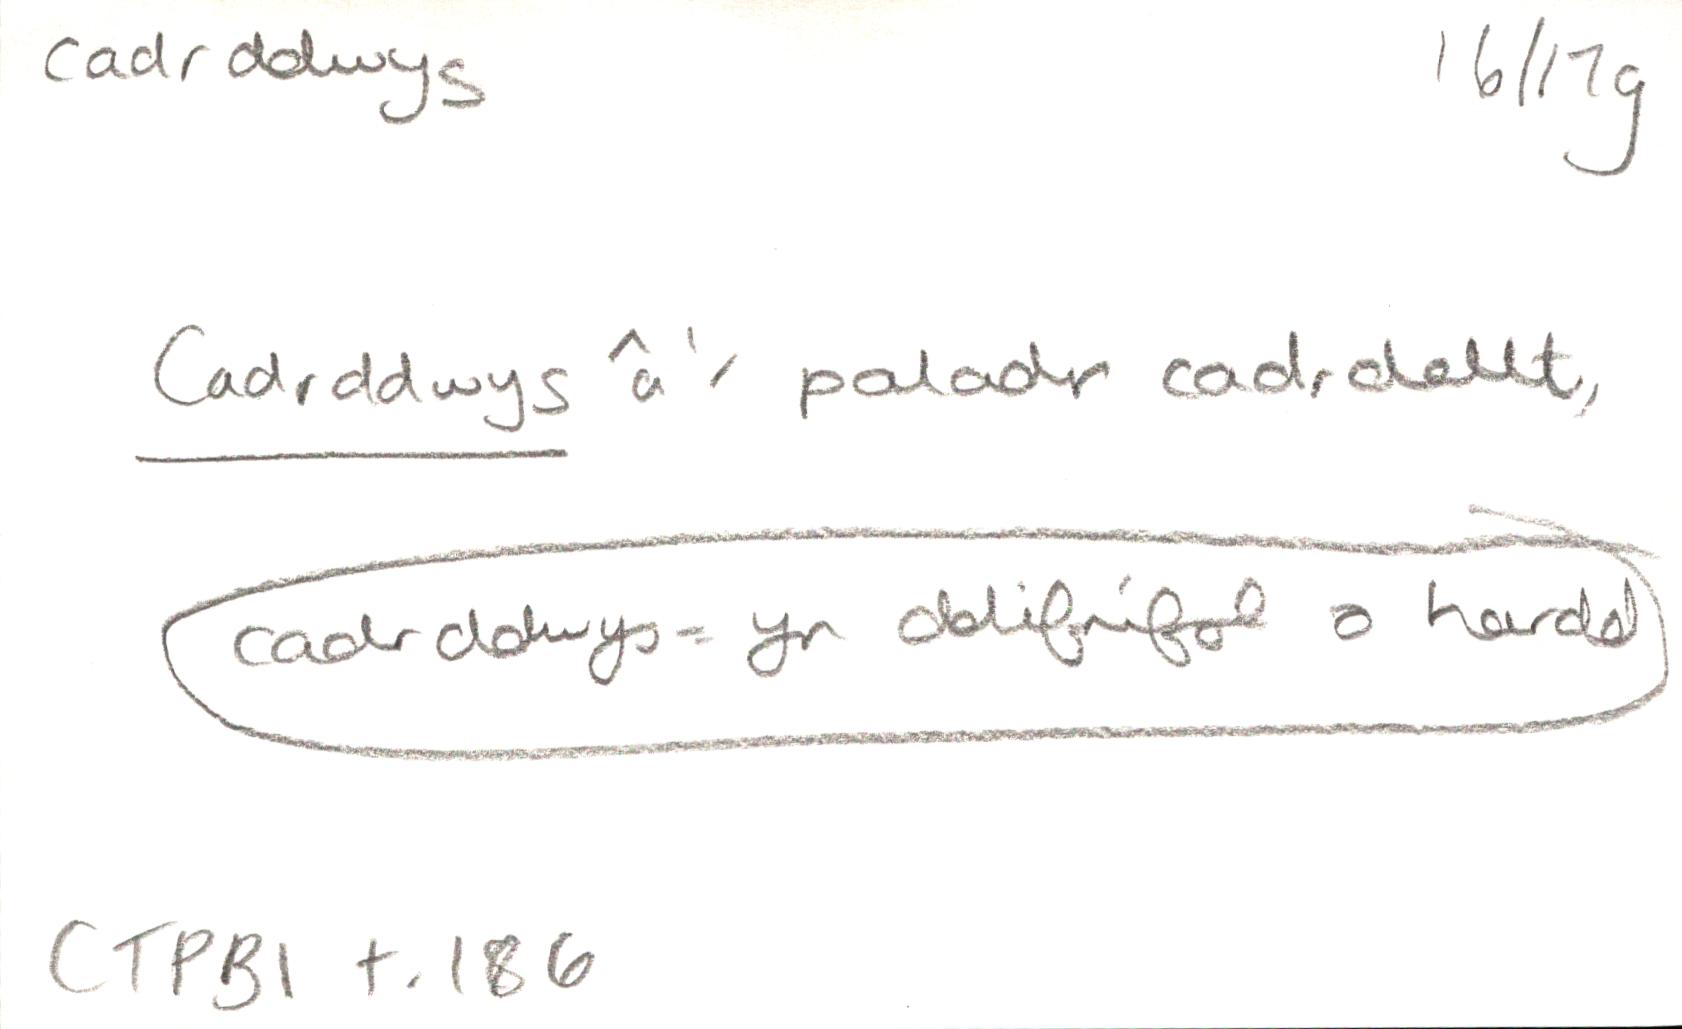 cadrddwys 16/17g
Cadrddwys â'r paladr cadrdellt,
cadrddwys = yn ddifrifol o hardd
CTPB1 t.186